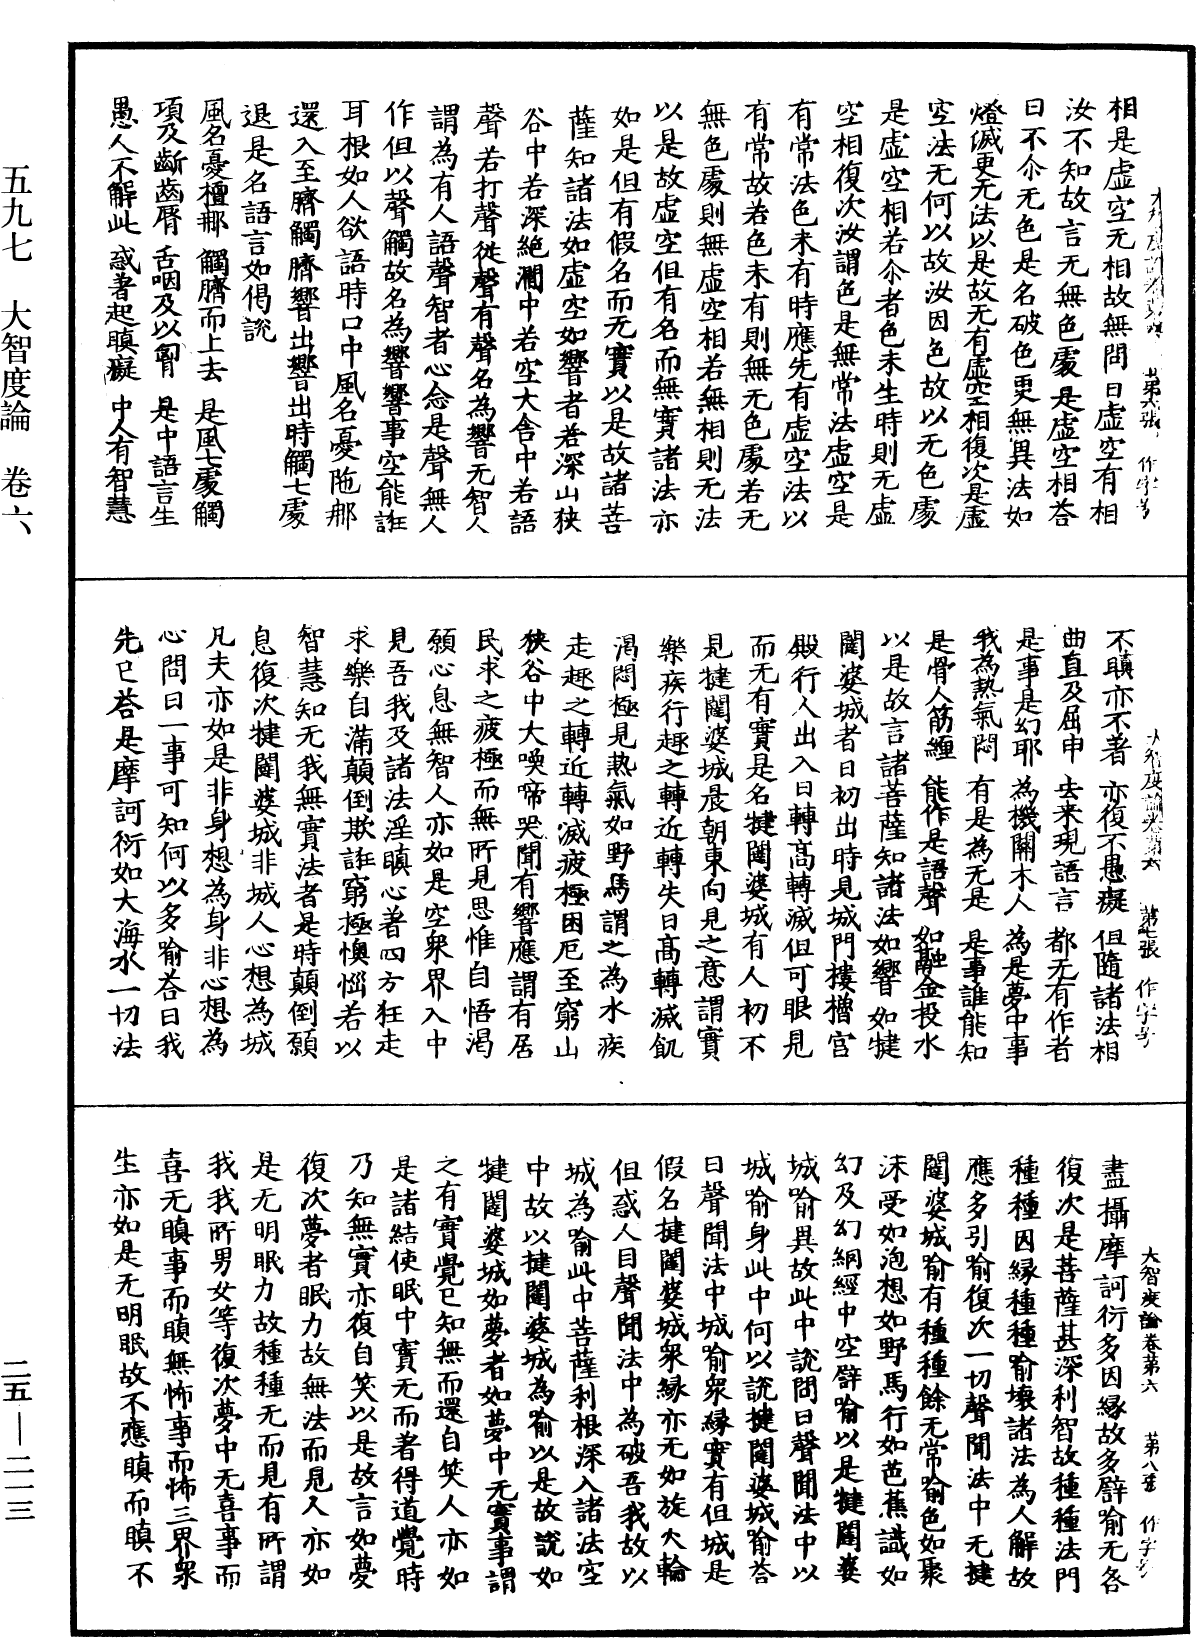 五九七　大智度論　卷六
二五—二一三
大智度論卷第六　第六張　作字号
相是虛空无相故無問曰虛空有相
汝不知故言无無色處是虛空相荅
曰不尒无色是名破色更無異法如
燈滅更无法以是故无有虛空相復次是虛
空法无何以故汝因色故以无色處
是虛空相若尒者色未生時則无虛
空相復次汝謂色是無常法虛空是
有常法色未有時應先有虛空法以
有常故若色未有則無无色處若无
無色處則無虛空相若無相則无法
以是故虛空但有名而無實諸法亦
如是但有假名而无實以是故諸菩
薩知諸法如虛空如響者若深山狹
谷中若深絕澗中若空大舍中若語
聲若打聲從聲有聲名為響无智人
謂為有人語聲智者心念是聲無人
作但以聲觸故名為響響事空能誑
耳根如人欲語時口中風名憂陁那
還入至臍觸臍響出響出時觸七處
退是名語言如偈說
風名憂檀那　觸臍而上去　是風七處觸
項及齗齒脣　舌咽及以胷　是中語言生
愚人不解此　惑著起瞋癡　中人有智慧
大智度論卷第六　第七張　作字号
不瞋亦不著　亦復不愚癡　但隨諸法相
曲直及屈申　去来現語言　都无有作者
是事是幻耶　為機關木人　為是夢中事
我為熱氣悶　有是為无是　是事誰能知
是骨人筋纏　能作是語聲　如融金投水
以是故言諸菩薩知諸法如響如揵
闥婆城者日初出時見城門樓櫓宮
殿行人出入日轉高轉滅但可眼見
而无有實是名揵闥婆城有人初不
見揵闥婆城晨朝東向見之意謂實
樂疾行趣之轉近轉失日高轉滅飢
渴悶極見熱氣如野馬謂之為水疾
走趣之轉近轉滅疲極困厄至窮山
狹谷中大喚啼哭聞有響應謂有居
民求之疲極而無所見思惟自悟渴
願心息無智人亦如是空衆界入中
見吾我及諸法淫瞋心著四方狂走
求樂自滿顛倒欺誑窮極懊惱若以
智慧知无我無實法者是時顛倒願
息復次揵闥婆城非城人心想為城
凡夫亦如是非身想為身非心想為
心問曰一事可知何以多喻荅曰我
先已荅是摩訶衍如大海水一切法
大智度論卷第六　第八張　作字号
盡攝摩訶衍多因縁故多譬喻无咎
復次是菩薩甚深利智故種種法門
種種因縁種種喻壞諸法為人解故
應多引喻復次一切聲聞法中无揵
闥婆城喻有種種餘无常喻色如聚
沫受如泡想如野馬行如芭蕉識如
幻及幻網經中空譬喻以是揵闥婆
城喻異故此中說問曰聲聞法中以
城喻身此中何以說揵闥婆城喻荅
曰聲聞法中城喻衆縁實有但城是
假名揵闥婆城衆縁亦无如旋火輪
但惑人目聲聞法中為破吾我故以
城為喻此中菩薩利根深入諸法空
中故以揵闥婆城為喻以是故說如
揵闥婆城如夢者如夢中无實事謂
之有實覺已知無而還自笑人亦如
是諸結使眠中實无而著得道覺時
乃知無實亦復自笑以是故言如夢
復次夢者眠力故無法而見人亦如
是无明眠力故種種无而見有所謂
我我所男女等復次夢中无喜事而
喜无瞋事而瞋無怖事而怖三界衆
生亦如是无明眠故不應瞋而瞋不